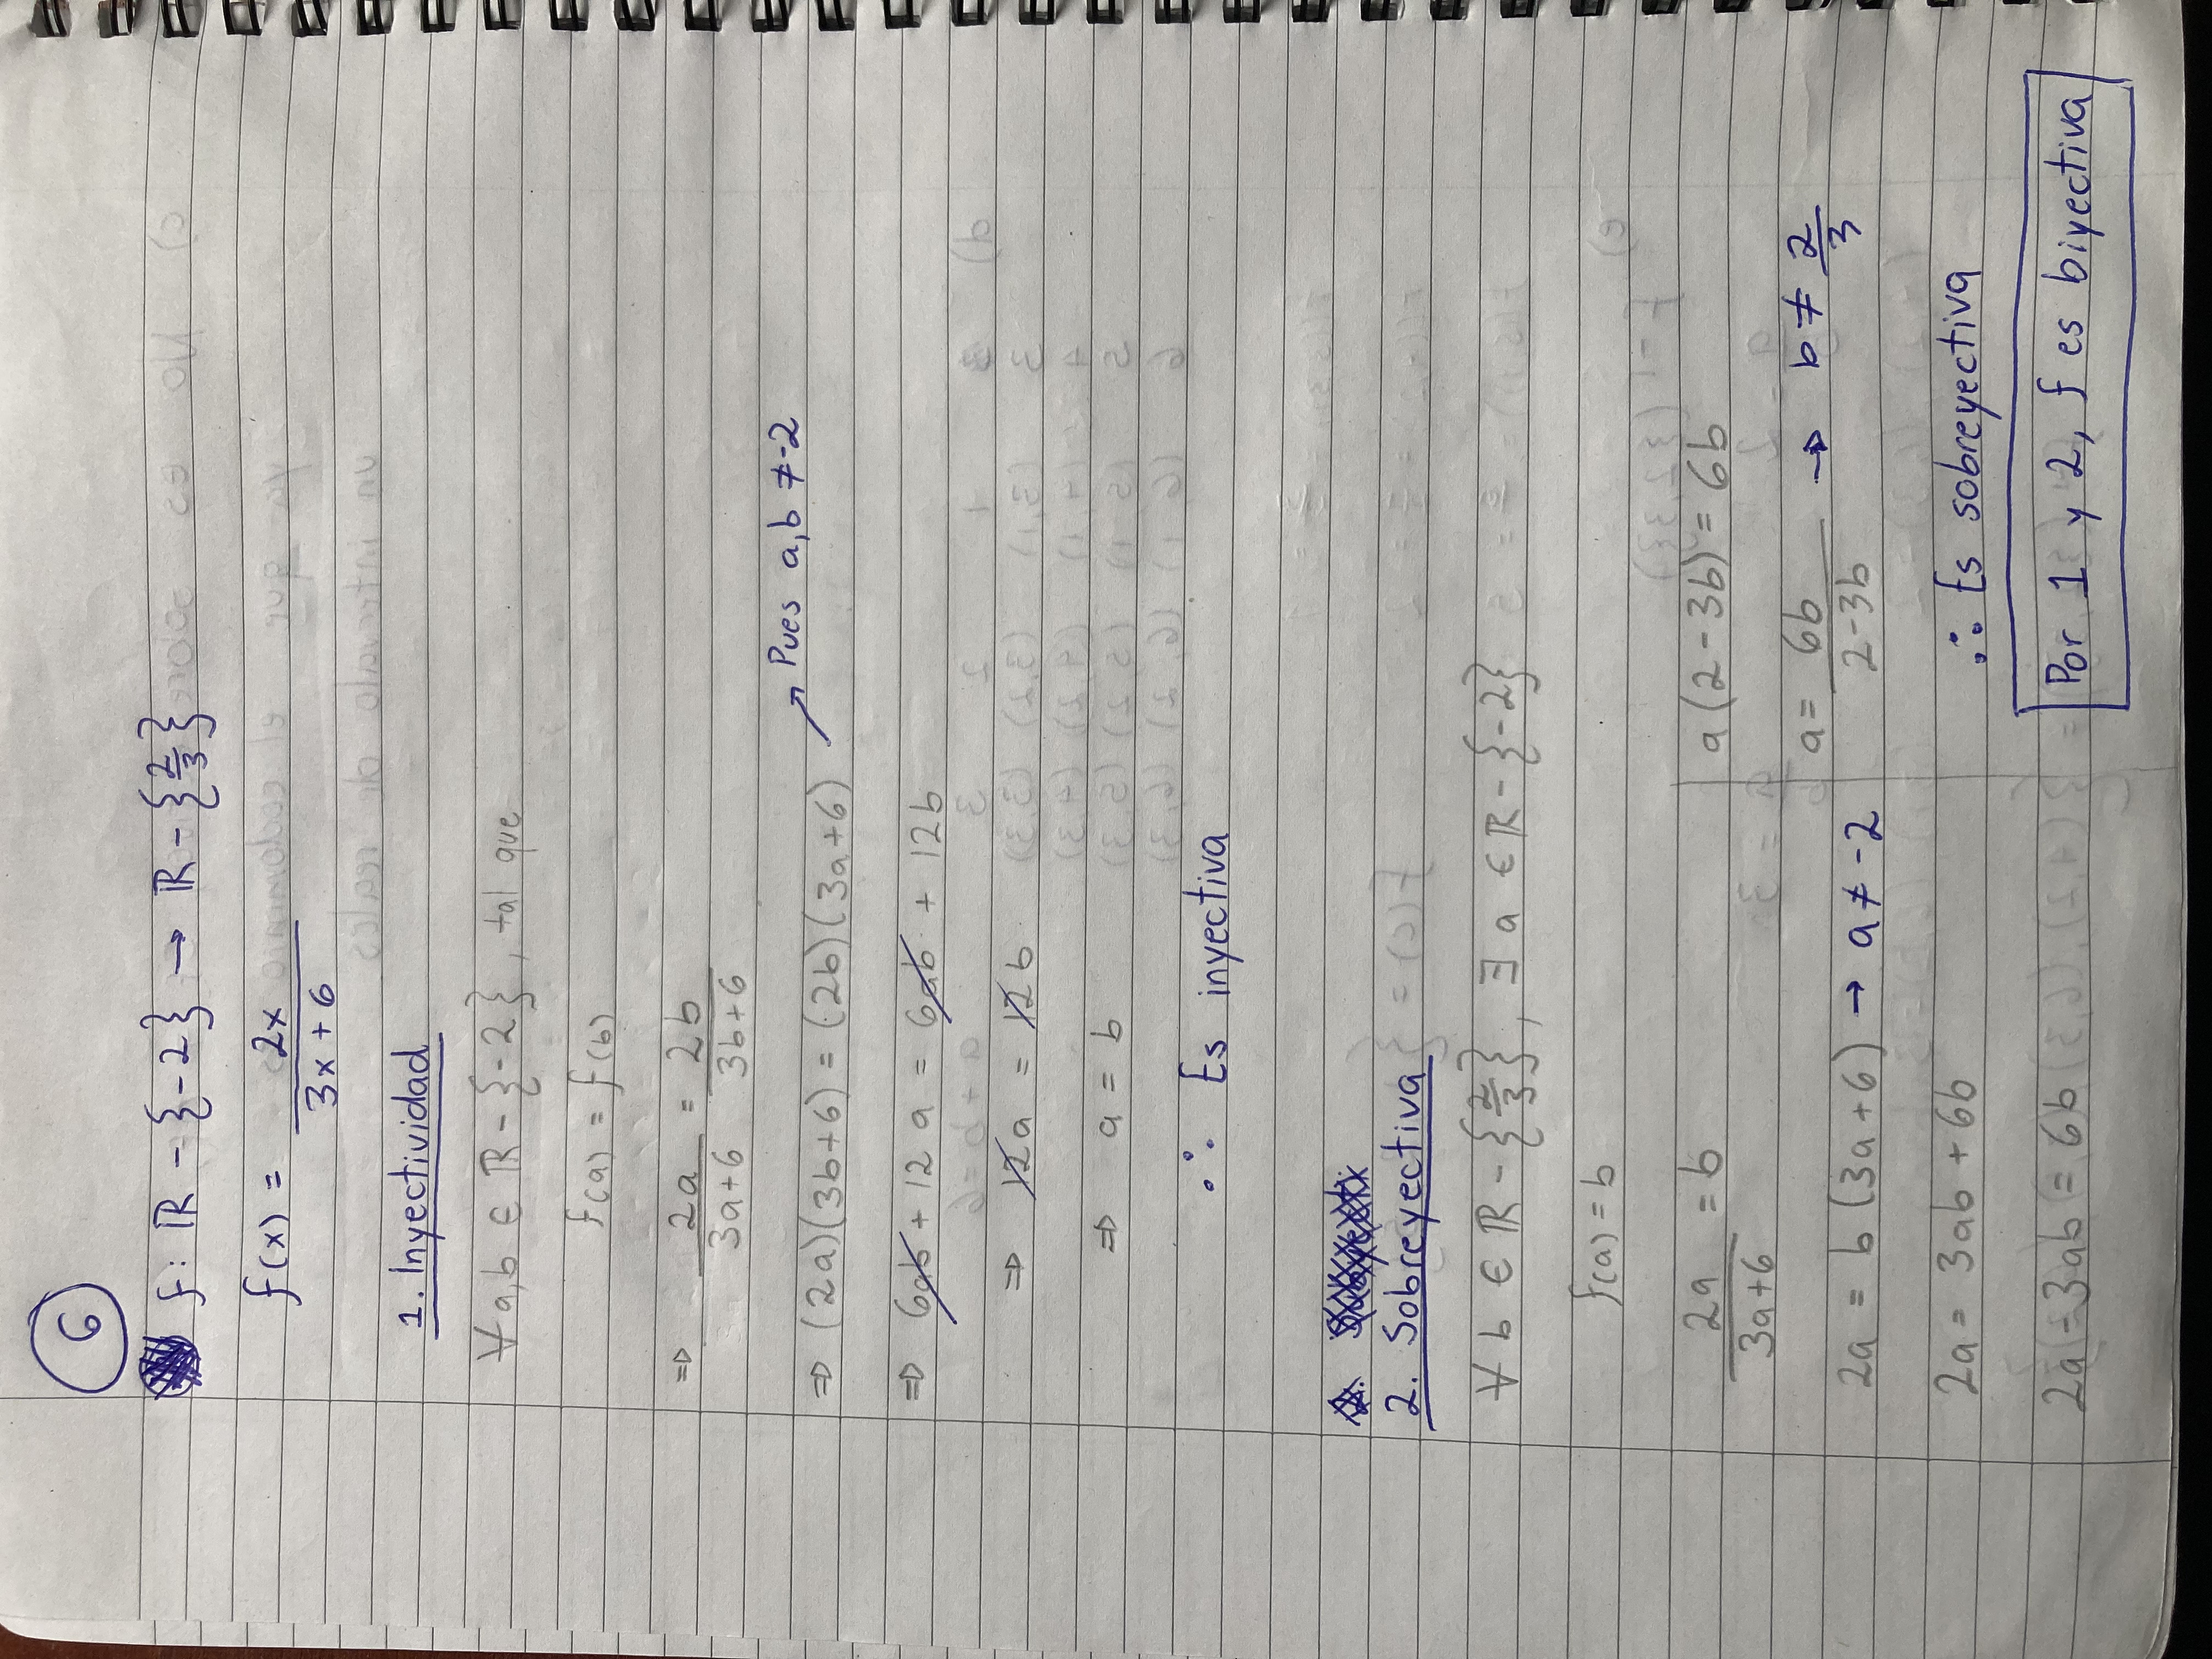 6
f: ℝ - {-2} → ℝ - {2/3}
f(x) = 2x / 3x + 6
1. Inyectividad
∀ a,b ∈ ℝ - {-2}, tal que
f(a) = f(b)
⇒ 2a / 3a+6 = 2b / 3b+6
⇒ (2a)(3b+6) = (2b)(3a+6) ↗ Pues a,b ≠ -2
⇒ 6ab + 12a = 6ab + 12b
⇒ 12a = 12b
⇒ a = b
∴ Es inyectiva
2. Sobreyectiva
∀ b ∈ ℝ - {2/3}, ∃ a ∈ ℝ - {-2}
f(a) = b
2a / 3a+6 = b
2a = b (3a+6) → a ≠ -2
2a = 3ab + 6b
2a - 3ab = 6b
a (2-3b) = 6b
a = 6b / 2-3b → b ≠ 2/3
∴ Es sobreyectiva
Por 1 y 2, f es biyectiva